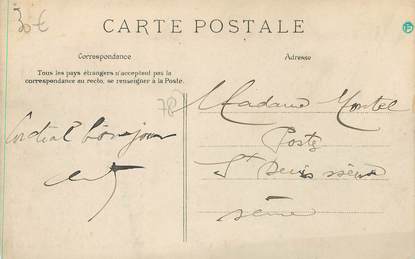 30€
CARTE POSTALE
Correspondance
Adresse
Tous les pays étrangers n'acceptent pas la
correspondance au recto, se renseigner à la Poste.
78
Cordial bonjour
Madame Montel
Poste
St Denis
Seine